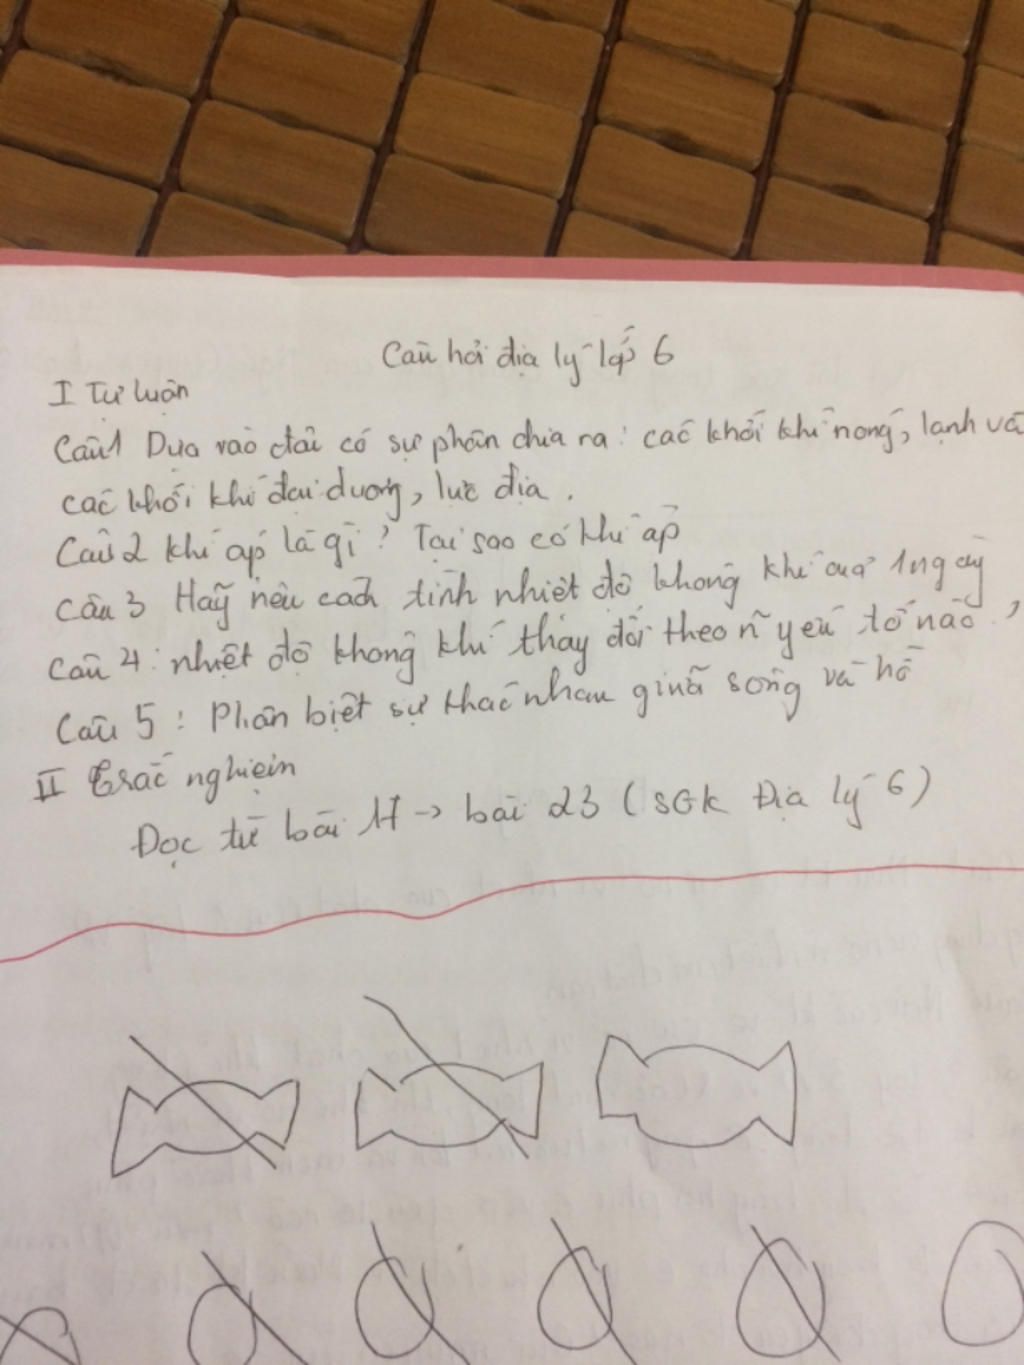 Câu hỏi địa lý lớp 6
I Tự luận
Câu1 Dựa vào đâu có sự phân chia ra: các khối khí nóng, lạnh và
các khối khí đại dương, lục địa.
Câu 2 khí áp là gì? Tại sao có khí áp
Câu 3 Hãy nêu cách tính nhiệt độ không khí của 1 ngày
Câu 4: nhiệt độ không khí thay đổi theo n~ yếu tố nào?
Câu 5: Phân biệt sự khác nhau giữa sông và hồ
II Trắc nghiệm
Đọc từ bài 17 -> bài 23 (SGK Địa lý 6)